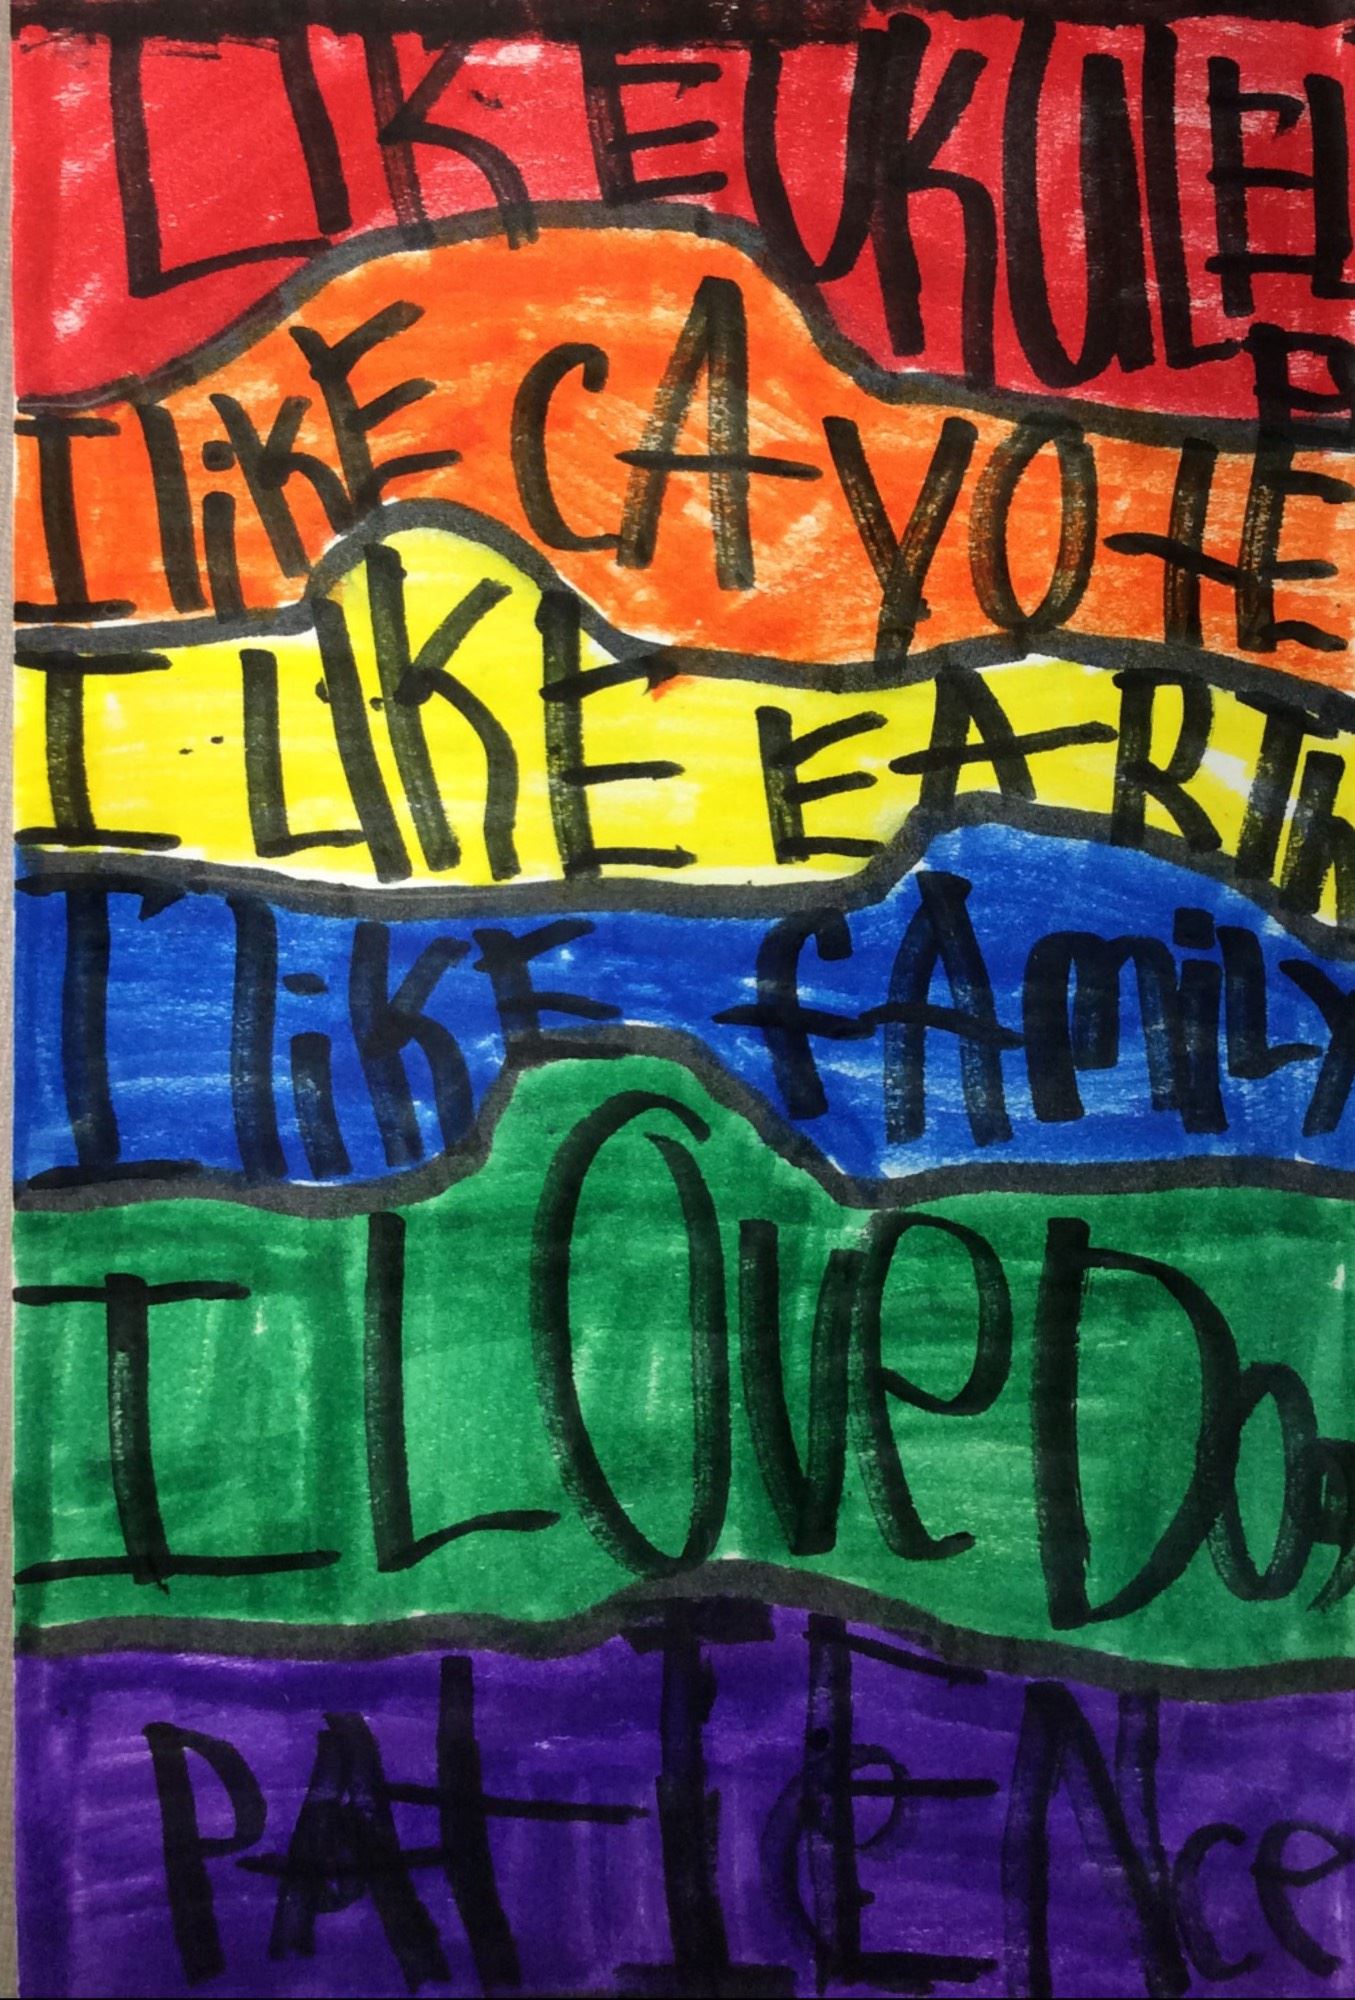 I LIKE UKULELE
I liKE CAYOtE
I LIKE EARTh
I liKE fAmiLY
I LOVe Dogs
PAtIENce